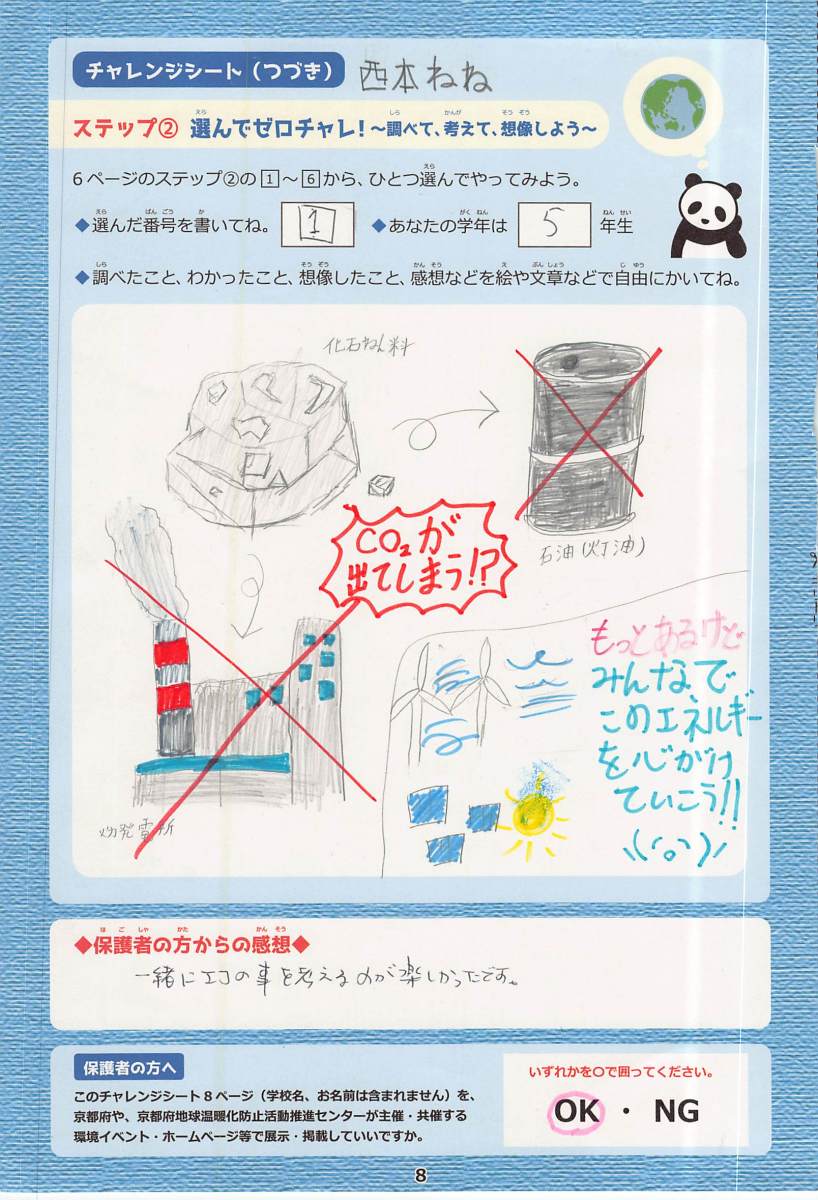 チャレンジシート(つづき) 西本ねね
ステップ② 選んでゼロチャレ!~調べて、考えて、想像しよう~
6ページのステップ②の1~6から、ひとつ選んでやってみよう。
◆選んだ番号を書いてね。 1 ◆あなたの学年は 5 年生
◆調べたこと、わかったこと、想像したこと、感想などを絵や文章などで自由にかいてね。
化石ねん料
CO₂が
出てしまう!?
石油(灯油)
もっとあるけど
みんなで
このエネルギー
を心がけ
ていこう!!
火力発電所
◆保護者の方からの感想◆
一緒にエコの事を考えるのが楽しかったです。
保護者の方へ
このチャレンジシート8ページ(学校名、お名前は含まれません)を、
京都府や、京都府地球温暖化防止活動推進センターが主催・共催する
環境イベント・ホームページ等で展示・掲載していいですか。
いずれかを○で囲ってください。
OK ・ NG
8